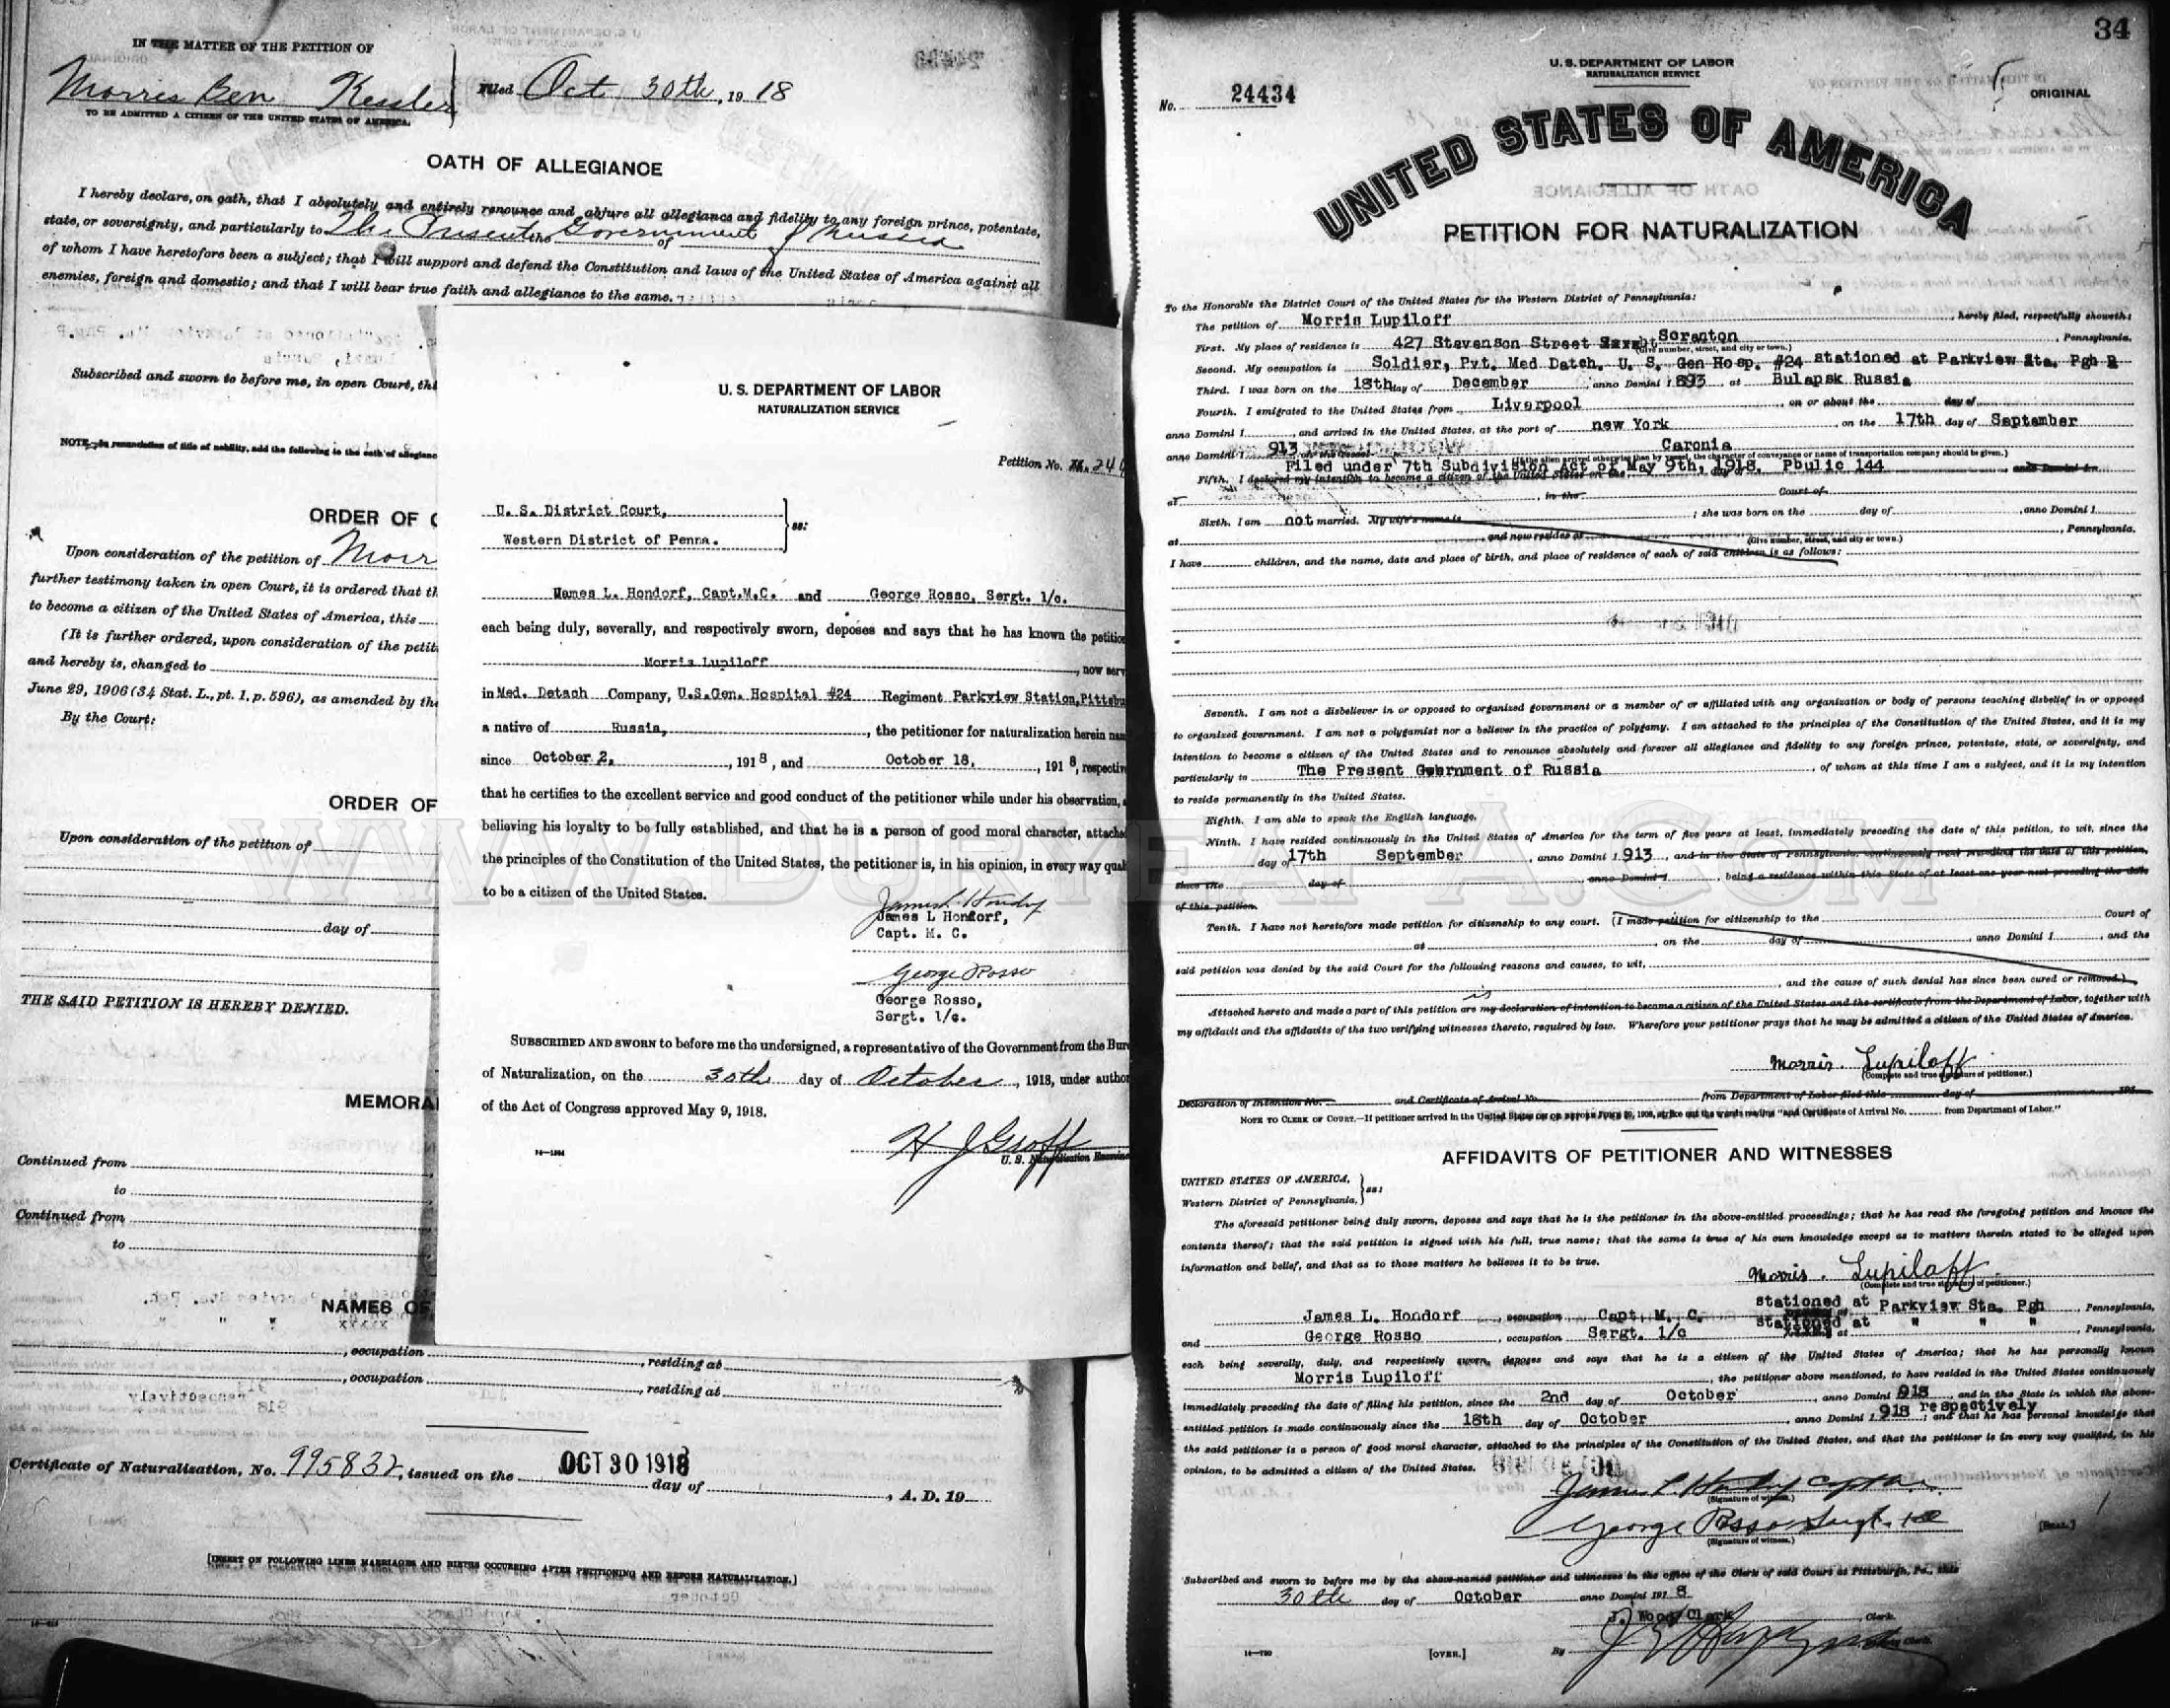 IN THE MATTER OF THE PETITION OF
Morris Ben Kessler Filed Oct 30th, 19 18
TO BE ADMITTED A CITIZEN OF THE UNITED STATES OF AMERICA.
OATH OF ALLEGIANCE
I hereby declare, on oath, that I absolutely and entirely renounce and abjure all allegiance and fidelity to any foreign prince, potentate,
state, or sovereignty, and particularly to The Present the Government of Russia
of whom I have heretofore been a subject; that I will support and defend the Constitution and laws of the United States of America against all
enemies, foreign and domestic; and that I will bear true faith and allegiance to the same.
Subscribed and sworn to before me, in open Court, thi
NOTE.—In renunciation of title of nobility, add the following to the oath of allegianc
ORDER OF
Upon consideration of the petition of Morr
further testimony taken in open Court, it is ordered that th
to become a citizen of the United States of America, this
(It is further ordered, upon consideration of the petit
and hereby is, changed to
June 29, 1906 (34 Stat. L., pt. 1, p. 596), as amended by the
By the Court:
ORDER OF
Upon consideration of the petition of
day of
THE SAID PETITION IS HEREBY DENIED.
MEMORA
Continued from
to
Continued from
to
NAMES OF
, occupation , residing at
, occupation , residing at
Certificate of Naturalization, No. 995832, issued on the OCT 30 1918 day of , A. D. 19
[INSERT ON FOLLOWING LINES MARRIAGES AND BIRTHS OCCURRING AFTER PETITIONING AND BEFORE NATURALIZATION.]
U. S. DEPARTMENT OF LABOR
NATURALIZATION SERVICE
Petition No. 24
U. S. District Court,
Western District of Penna. ss:
Wames L. Hondorf, Capt.M.C. and George Rosso, Sergt. 1/c.
each being duly, severally, and respectively sworn, deposes and says that he has known the petition
Morris Lupiloff , now serv
in Med. Detach Company, U.S.Gen. Hospital #24 Regiment Parkview Station,Pittsbu
a native of Russia, , the petitioner for naturalization herein nam
since October 2, , 1918, and October 18, , 1918, respective
that he certifies to the excellent service and good conduct of the petitioner while under his observation, a
believing his loyalty to be fully established, and that he is a person of good moral character, attache
the principles of the Constitution of the United States, the petitioner is, in his opinion, in every way qual
to be a citizen of the United States.
James L Hondorf,
Capt. M. C.
George Rosso
George Rosso,
Sergt. 1/c.
SUBSCRIBED AND SWORN to before me the undersigned, a representative of the Government from the Bure
of Naturalization, on the 30th day of October, 1918, under author
of the Act of Congress approved May 9, 1918.
U. S. Naturalization Examine
34
U. S. DEPARTMENT OF LABOR
NATURALIZATION SERVICE
No. 24434 ORIGINAL
UNITED STATES OF AMERICA
PETITION FOR NATURALIZATION
To the Honorable the District Court of the United States for the Western District of Pennsylvania:
The petition of Morris Lupiloff , hereby filed, respectfully showeth:
First. My place of residence is 427 Stevenson Street Scranton , Pennsylvania.
(Give number, street, and city or town.)
Second. My occupation is Soldier, Pvt. Med Datch. U. S. Gen Hosp. #24 stationed at Parkview Sta. Pgh P
Third. I was born on the 18th day of December , anno Domini 1893 , at Bulapsk Russia
Fourth. I emigrated to the United States from Liverpool , on or about the day of
anno Domini 1 , and arrived in the United States, at the port of new York , on the 17th day of September
anno Domini 1 913 Caronia
(If the alien arrived otherwise than by vessel, the character of conveyance or name of transportation company should be given.)
Filed under 7th Subdivision Act of May 9th, 1918. Pbulic 144
Fifth. I declared my intention to become a citizen of the United States on the day of , anno Domini 1
at , in the Court of
Sixth. I am not married. My wife's name is ; she was born on the day of , anno Domini 1
at , and now resides at , Pennsylvania.
(Give number, street, and city or town.)
I have children, and the name, date and place of birth, and place of residence of each of said children is as follows:
Seventh. I am not a disbeliever in or opposed to organized government or a member of or affiliated with any organization or body of persons teaching disbelief in or opposed
to organized government. I am not a polygamist nor a believer in the practice of polygamy. I am attached to the principles of the Constitution of the United States, and it is my
intention to become a citizen of the United States and to renounce absolutely and forever all allegiance and fidelity to any foreign prince, potentate, state, or sovereignty, and
particularly to The Present Government of Russia , of whom at this time I am a subject, and it is my intention
to reside permanently in the United States.
Eighth. I am able to speak the English language.
Ninth. I have resided continuously in the United States of America for the term of five years at least, immediately preceding the date of this petition, to wit, since the
day of 17th September , anno Domini 1 913 , and in the State of Pennsylvania, continuously next preceding the date of this petition,
since the day of , anno Domini 1 , being a residence within this State of at least one year next preceding the date
of this petition.
Tenth. I have not heretofore made petition for citizenship to any court. (I made petition for citizenship to the Court of
at , on the day of , anno Domini 1 , and the
said petition was denied by the said Court for the following reasons and causes, to wit,
, and the cause of such denial has since been cured or removed.)
is
Attached hereto and made a part of this petition are my declaration of intention to become a citizen of the United States and the certificate from the Department of Labor, together with
my affidavit and the affidavits of the two verifying witnesses thereto, required by law. Wherefore your petitioner prays that he may be admitted a citizen of the United States of America.
Morris. Lupiloff
(Complete and true signature of petitioner.)
Declaration of Intention No. and Certificate of Arrival No. from Department of Labor filed this day of , 191
NOTE TO CLERK OF COURT.—If petitioner arrived in the United States ON OR BEFORE JUNE 29, 1906, strike out the words reading "and Certificate of Arrival No. from Department of Labor."
AFFIDAVITS OF PETITIONER AND WITNESSES
UNITED STATES OF AMERICA,
Western District of Pennsylvania, ss:
The aforesaid petitioner being duly sworn, deposes and says that he is the petitioner in the above-entitled proceedings; that he has read the foregoing petition and knows the
contents thereof; that the said petition is signed with his full, true name; that the same is true of his own knowledge except as to matters therein stated to be alleged upon
information and belief, and that as to those matters he believes it to be true.
Morris. Lupiloff.
(Complete and true signature of petitioner.)
James L. Hondorf , occupation Capt M. C. stationed at Parkview Sta. Pgh , Pennsylvania,
and George Rosso , occupation Sergt. 1/c stationed at " " " , Pennsylvania,
each being severally, duly, and respectively sworn, deposes and says that he is a citizen of the United States of America; that he has personally known
Morris Lupiloff , the petitioner above mentioned, to have resided in the United States continuously
immediately preceding the date of filing his petition, since the 2nd day of October , anno Domini 1 918 , and in the State in which the above-
entitled petition is made continuously since the 18th day of October , anno Domini 1 918 respectively ; and that he has personal knowledge that
the said petitioner is a person of good moral character, attached to the principles of the Constitution of the United States, and that the petitioner is in every way qualified, in his
opinion, to be admitted a citizen of the United States.
(Signature of witness.)
George Rosso Sergt. 1cl
(Signature of witness.)
[SEAL.]
Subscribed and sworn to before me by the above-named petitioner and witnesses in the office of the Clerk of said Court at Pittsburgh, Pa., this
30th day of October anno Domini 191 8
J. Wood Clark , Clerk.
By Deputy Clerk.
14—780 [OVER.]
WWW.DURYEAPA.COM